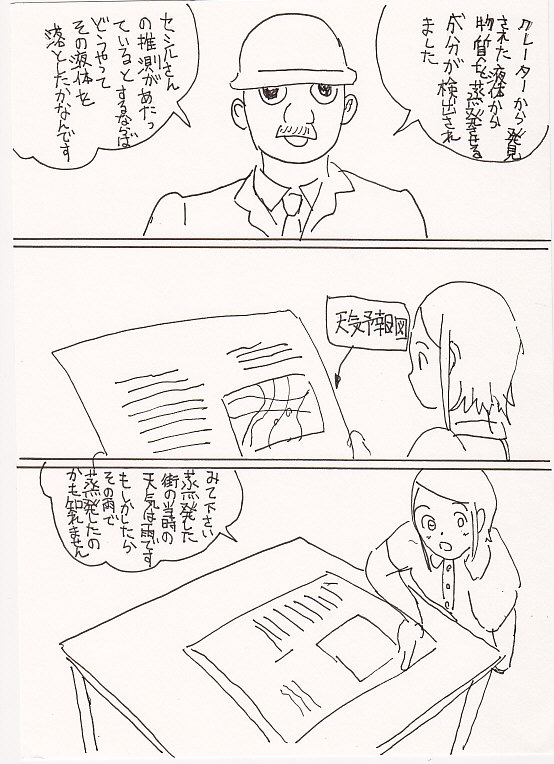 クレーターから発見
された液体から
物質を蒸発させる
成分が検出され
ました
セシルさん
の推測があたっ
ているとするならば
どうやって
その液体を
落としたかなんです
天気予報図
みて下さい
蒸発した
街の当時の
天気は雨です
もしかしたら
その雨で
蒸発したの
かも知れません